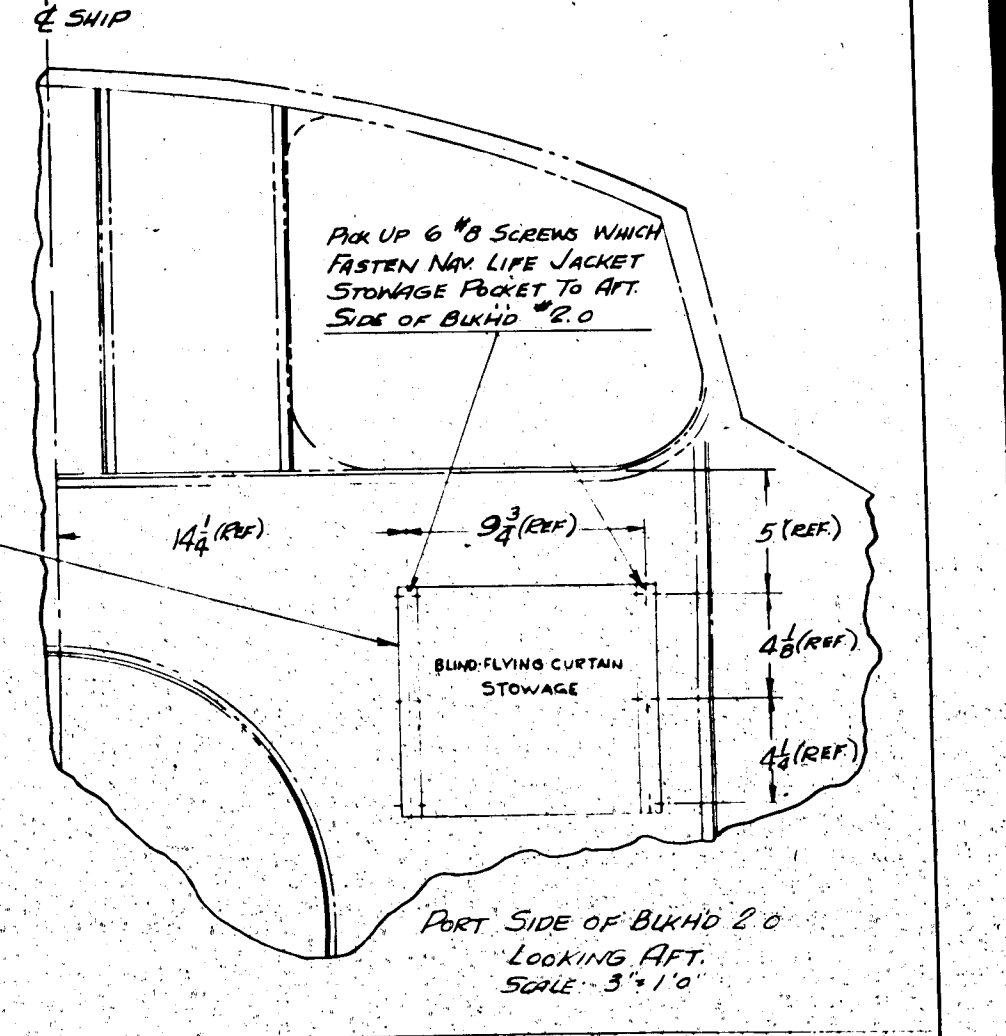 ℄ SHIP
PICK UP 6 #8 SCREWS WHICH
FASTEN NAV. LIFE JACKET
STOWAGE POCKET TO AFT.
SIDE OF BLKHD #2.0
14 1/4 (REF)
9 3/4 (REF)
5 (REF.)
4 1/8 (REF)
4 1/4 (REF.)
BLIND FLYING CURTAIN
STOWAGE
PORT SIDE OF BLKHD 2.0
LOOKING AFT.
SCALE 3"=1'0"